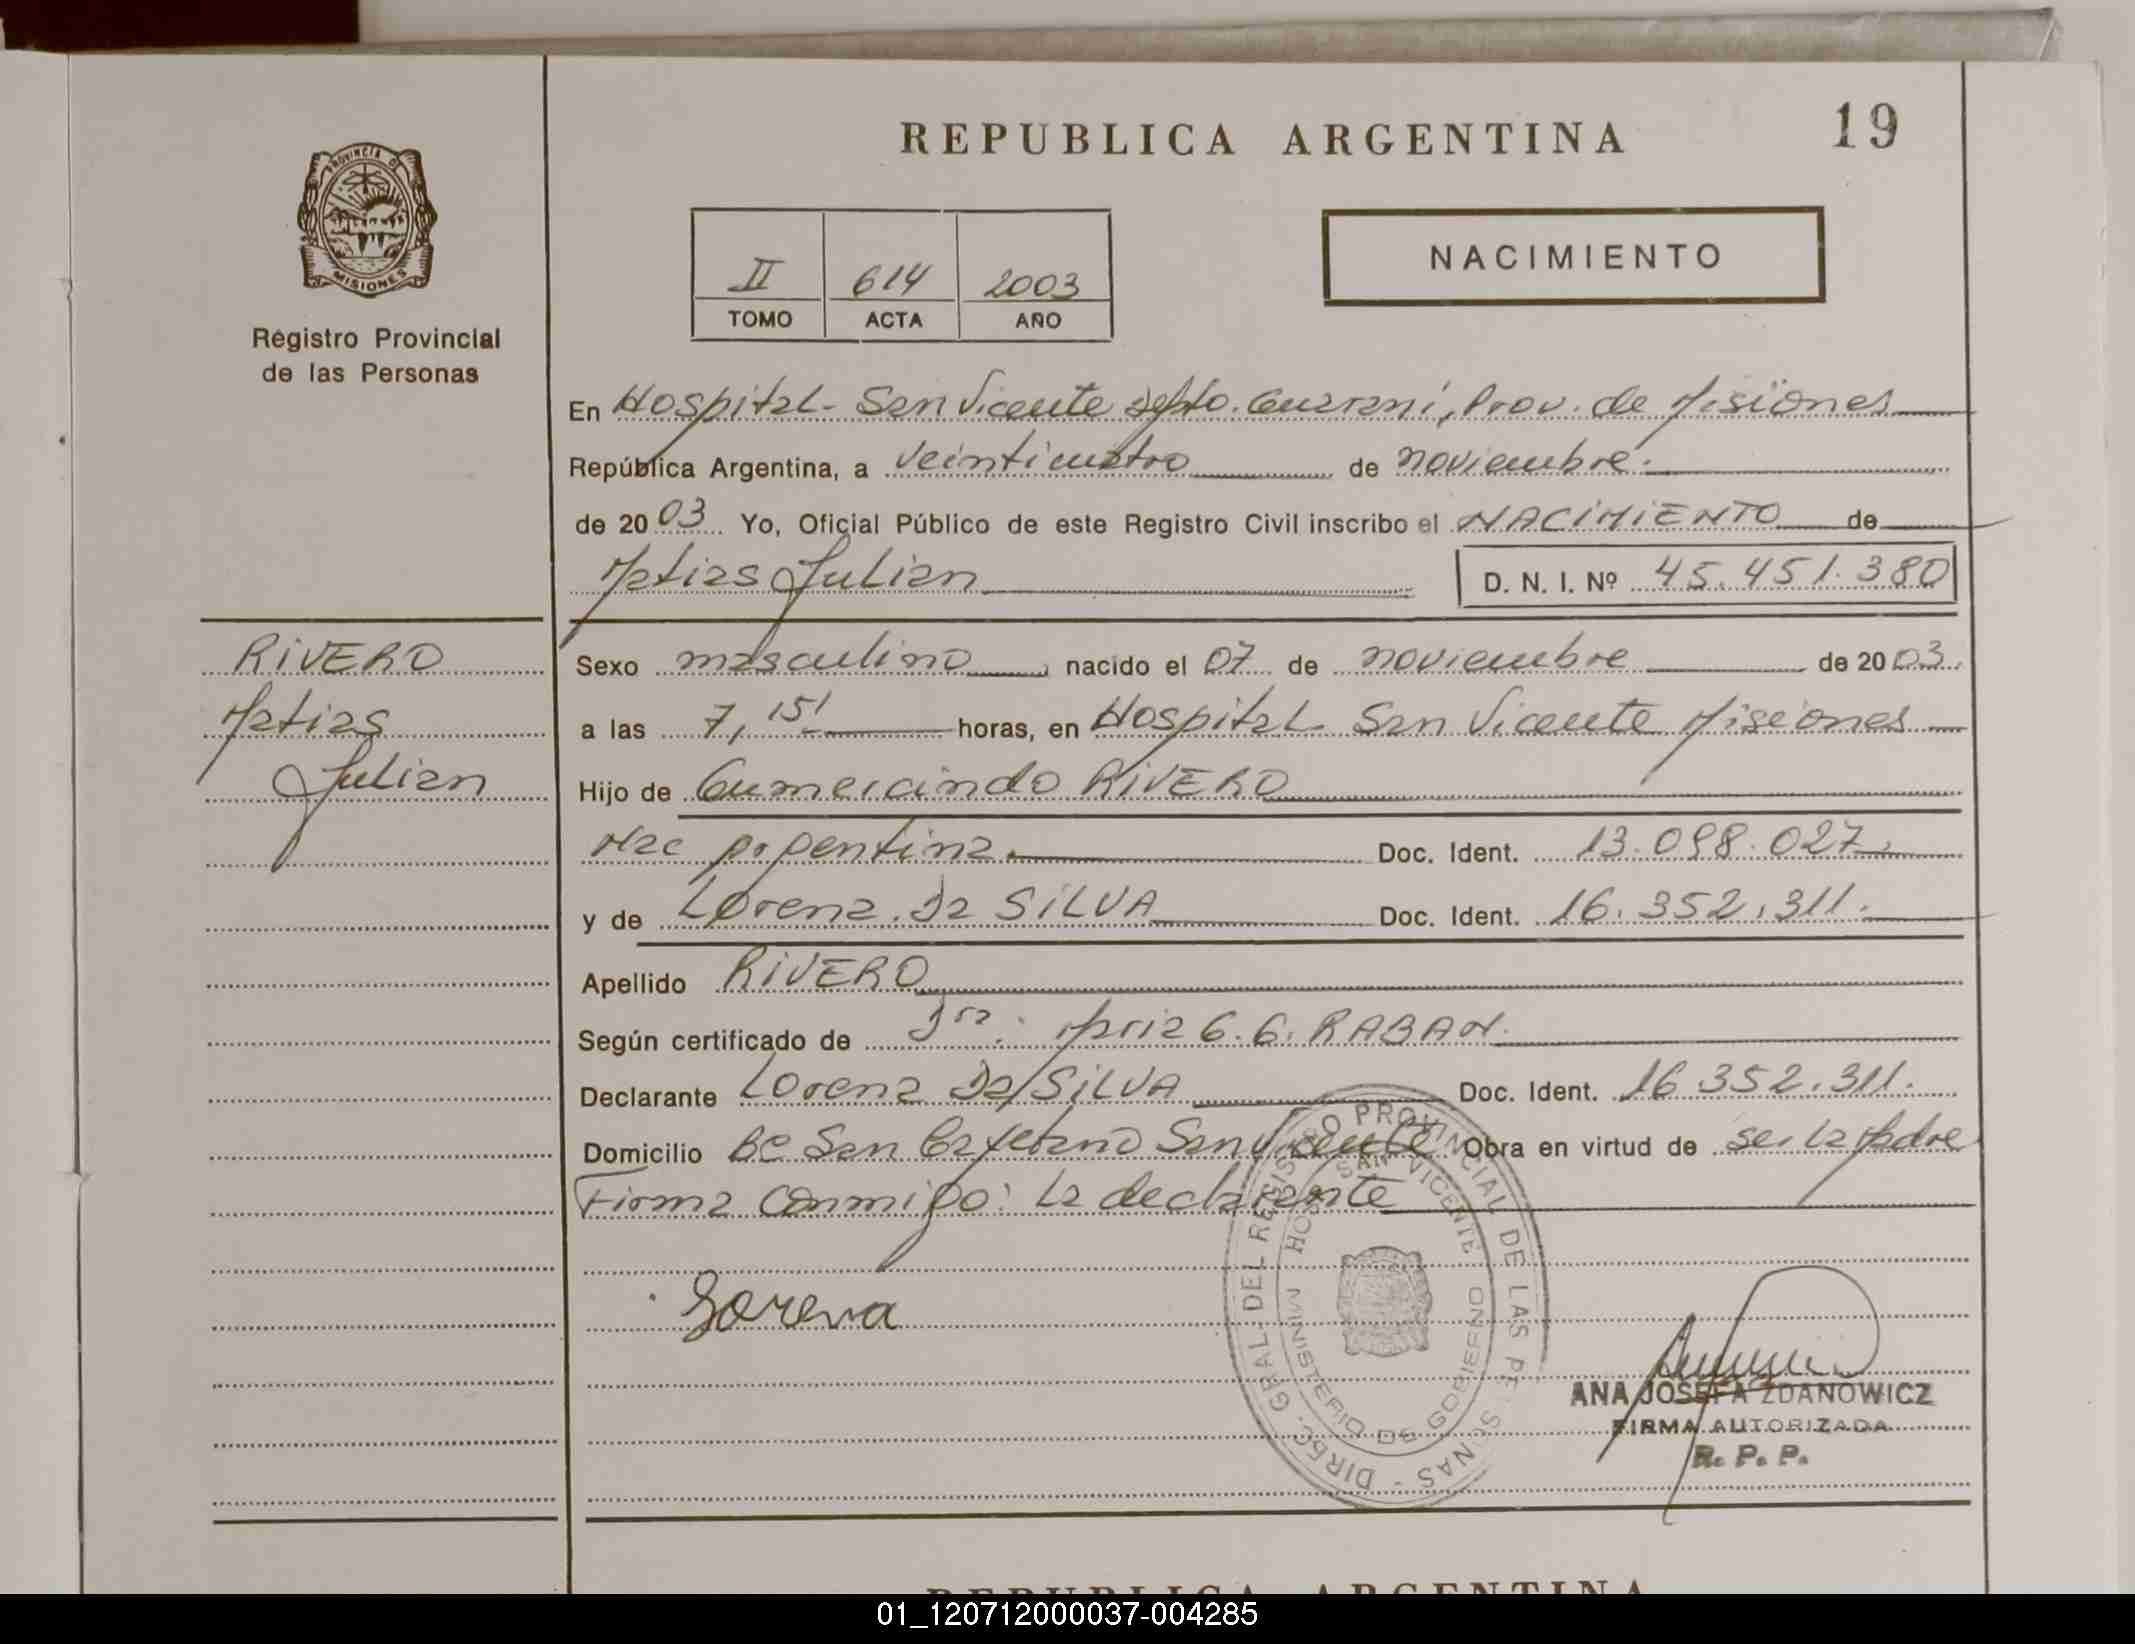 REPUBLICA ARGENTINA
19
PROVINCIA DE
MISIONES
Registro Provincial
de las Personas
II 614 2003
TOMO ACTA AÑO
NACIMIENTO
En Hospital - San Vicente Depto. Guarani, Prov. de Misiones
República Argentina, a veinticuatro de noviembre.
de 2003 Yo, Oficial Público de este Registro Civil inscribo el NACIMIENTO de
Matias Julian D. N. I. Nº 45.451.380
RIVERO
Matias
Julian
Sexo masculino, nacido el 07 de noviembre de 2003.
a las 7,15' horas, en Hospital San Vicente Misiones
Hijo de Gumercindo RIVERO
Nac Argentina. Doc. Ident. 13.098.027.
y de Lorena Da SILVA Doc. Ident. 16.352.311.
Apellido RIVERO
Según certificado de Dra. Maria G. G. RABAN.
Declarante Lorena Da SILVA Doc. Ident. 16.352.311.
Domicilio Bº San Cayetano San Vicente Obra en virtud de ser la Madre
Firma conmigo: La declarante
Lorena
DIREC. GRAL. DEL REGISTRO PROVINCIAL DE LAS PERSONAS
HOSP. SAN VICENTE
MINISTERIO DE GOBIERNO
ANA JOSEFA ZDANOWICZ
FIRMA AUTORIZADA
R. P. P.
REPUBLICA ARGENTINA
01_120712000037-004285